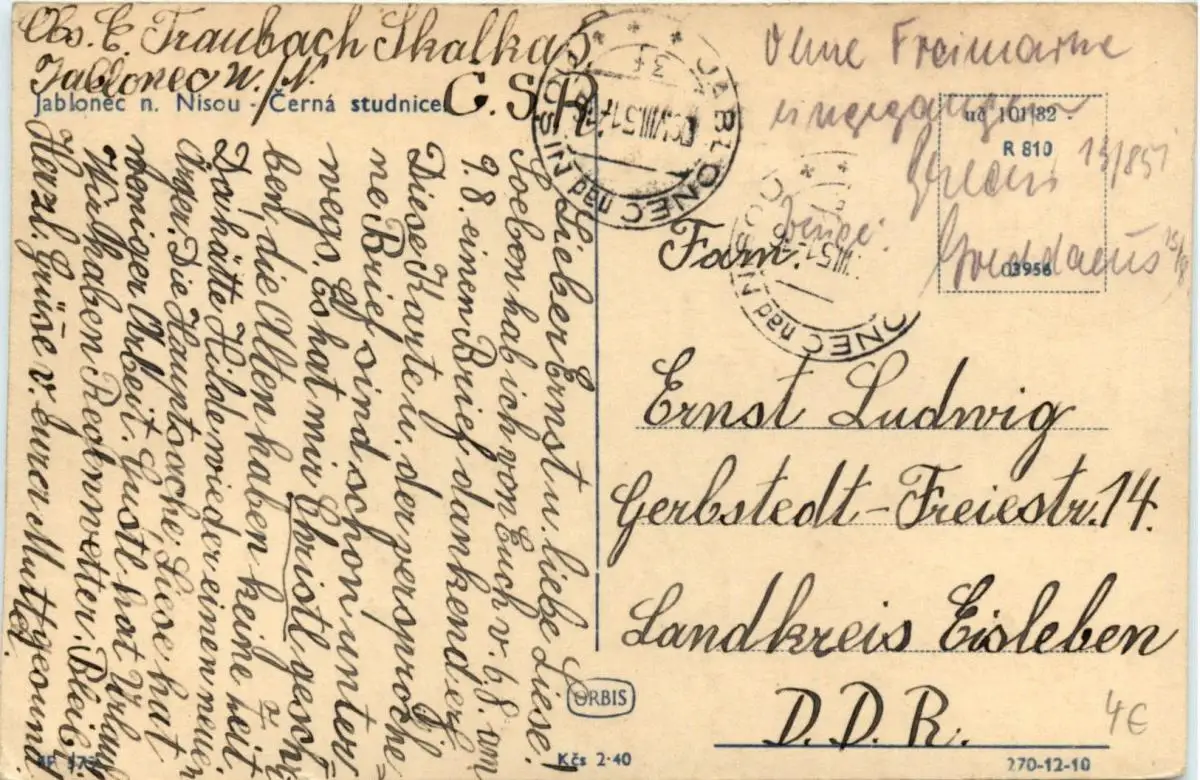 Obs. E. Traubach Skalka 5.
Jablonec n./N. Č.S.R.
Jablonec n. Nisou - Černá studnice
Lieber Ernst u. liebe Liese!
Soeben hab ich von Euch v. 6.8. um
9.8. einem Brief dankend erh.
Diese Karte u. der versproche
ne Brief sind schon unter
wegs. Es hat mir Christl geschr
ben, die Alten haben keine Zeit
Da hätte Hilde wieder einen neuen
Ärger. Die Hauptsache, Liese hat
weniger Arbeit. Gustl hat Urlaub
Wir haben Regenwetter. Bleib
gesund
Herzl. Grüße v. Eurer Mutter
JABLONEC nad NISOU
JABLONEC nad NISOU
Ohne Freimarke
eingegangen
uč 101/82
R 810
03956
Fam.
Ernst Ludwig
Gerbstedt - Freiestr. 14.
Landkreis Eisleben
D. D. R.
4€
ORBIS
Kčs 2·40
270-12-10